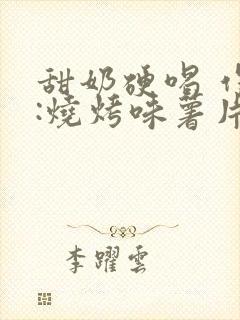 甜奶硬唱
:燒烤味薯片
李躍雲